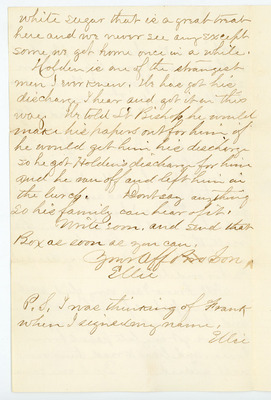 white sugar that is a great treat
here and we never see any except
some we get home once in a while.
Holden is one of the strangest
men I ever knew. He has got his
discharg I hear and got it in this
way. He told Lt Bishop he would
make his papers out for him if
he would get him his discharg
so he got Holden's discharge for him
and he run off and left him in
the lurch. Dont say anything
so his family can hear of it.
Write soon, and send that
Box as soon as you can.
Your Aff Son
Ellie
P.S. I was thinking of Frank
when I signed my name.
Ellie